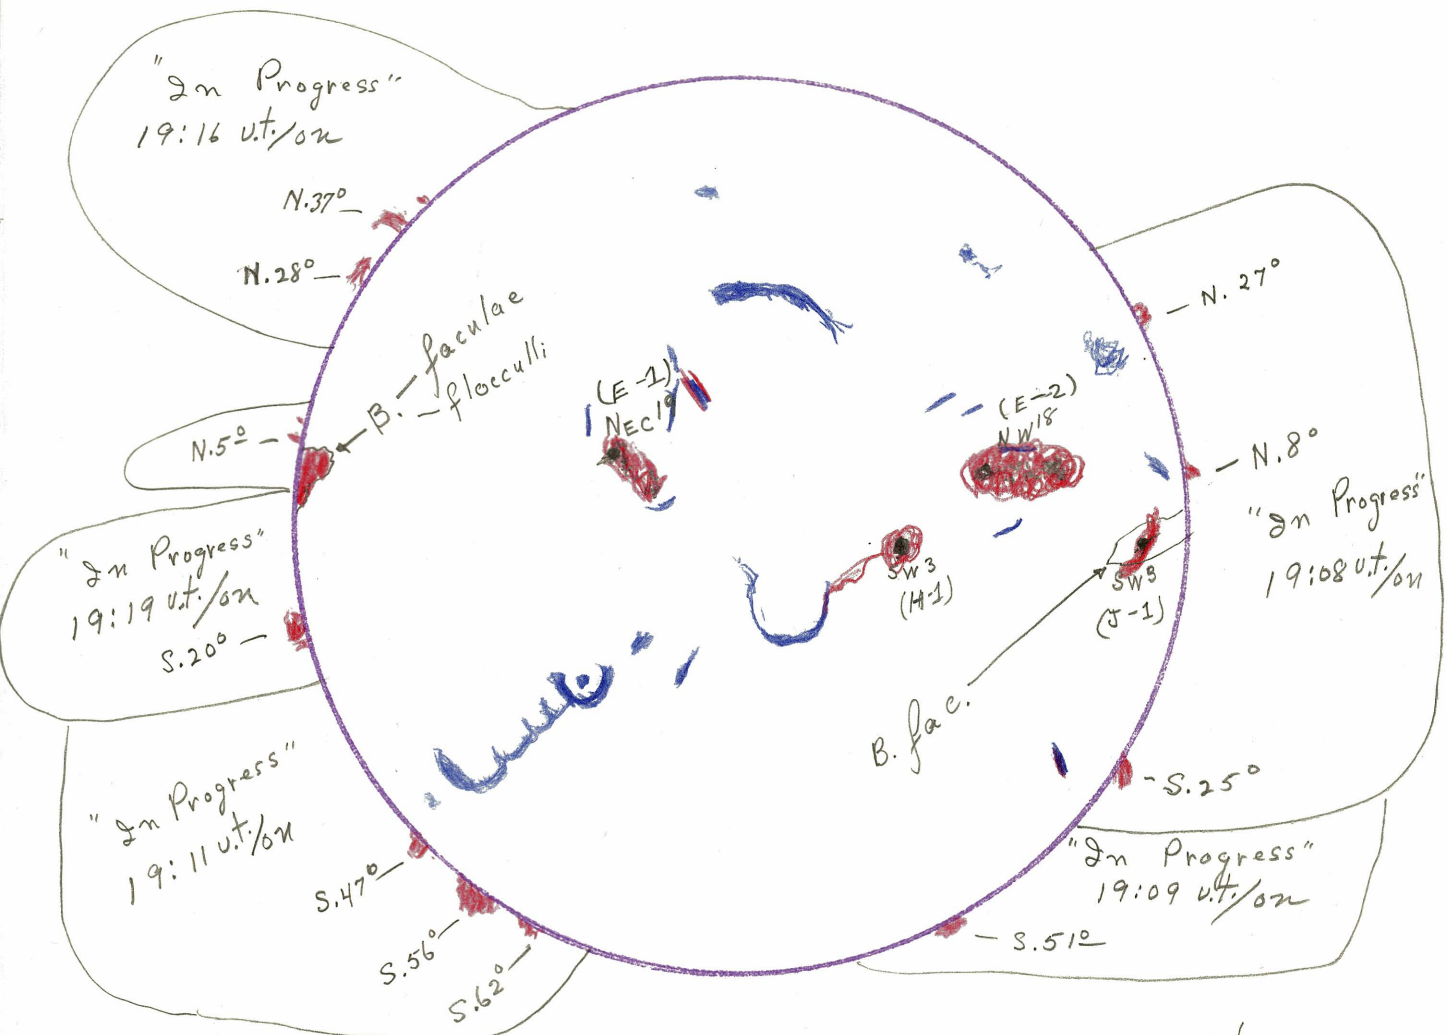 "In Progress"
19:16 u.t./on
N.37°
N.28°
B. – faculae
– flocculli
N.5°
"In Progress"
19:19 u.t./on
S.20°
"In Progress"
19:11 u.t./on
S.47°
S.56°
S.62°
(E-1)
NEC19
(E-2)
NW18
SW3
(H-1)
SW3
(J-1)
B. fac.
N. 27°
N.8°
"In Progress"
19:08 u.t./on
S.25°
"In Progress"
19:09 u.t./on
S.51°